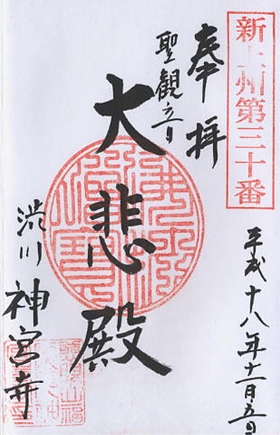 新上州第三十番
奉拝
平成十八年十一月五日
聖観音
大悲殿
渋川
神宮寺